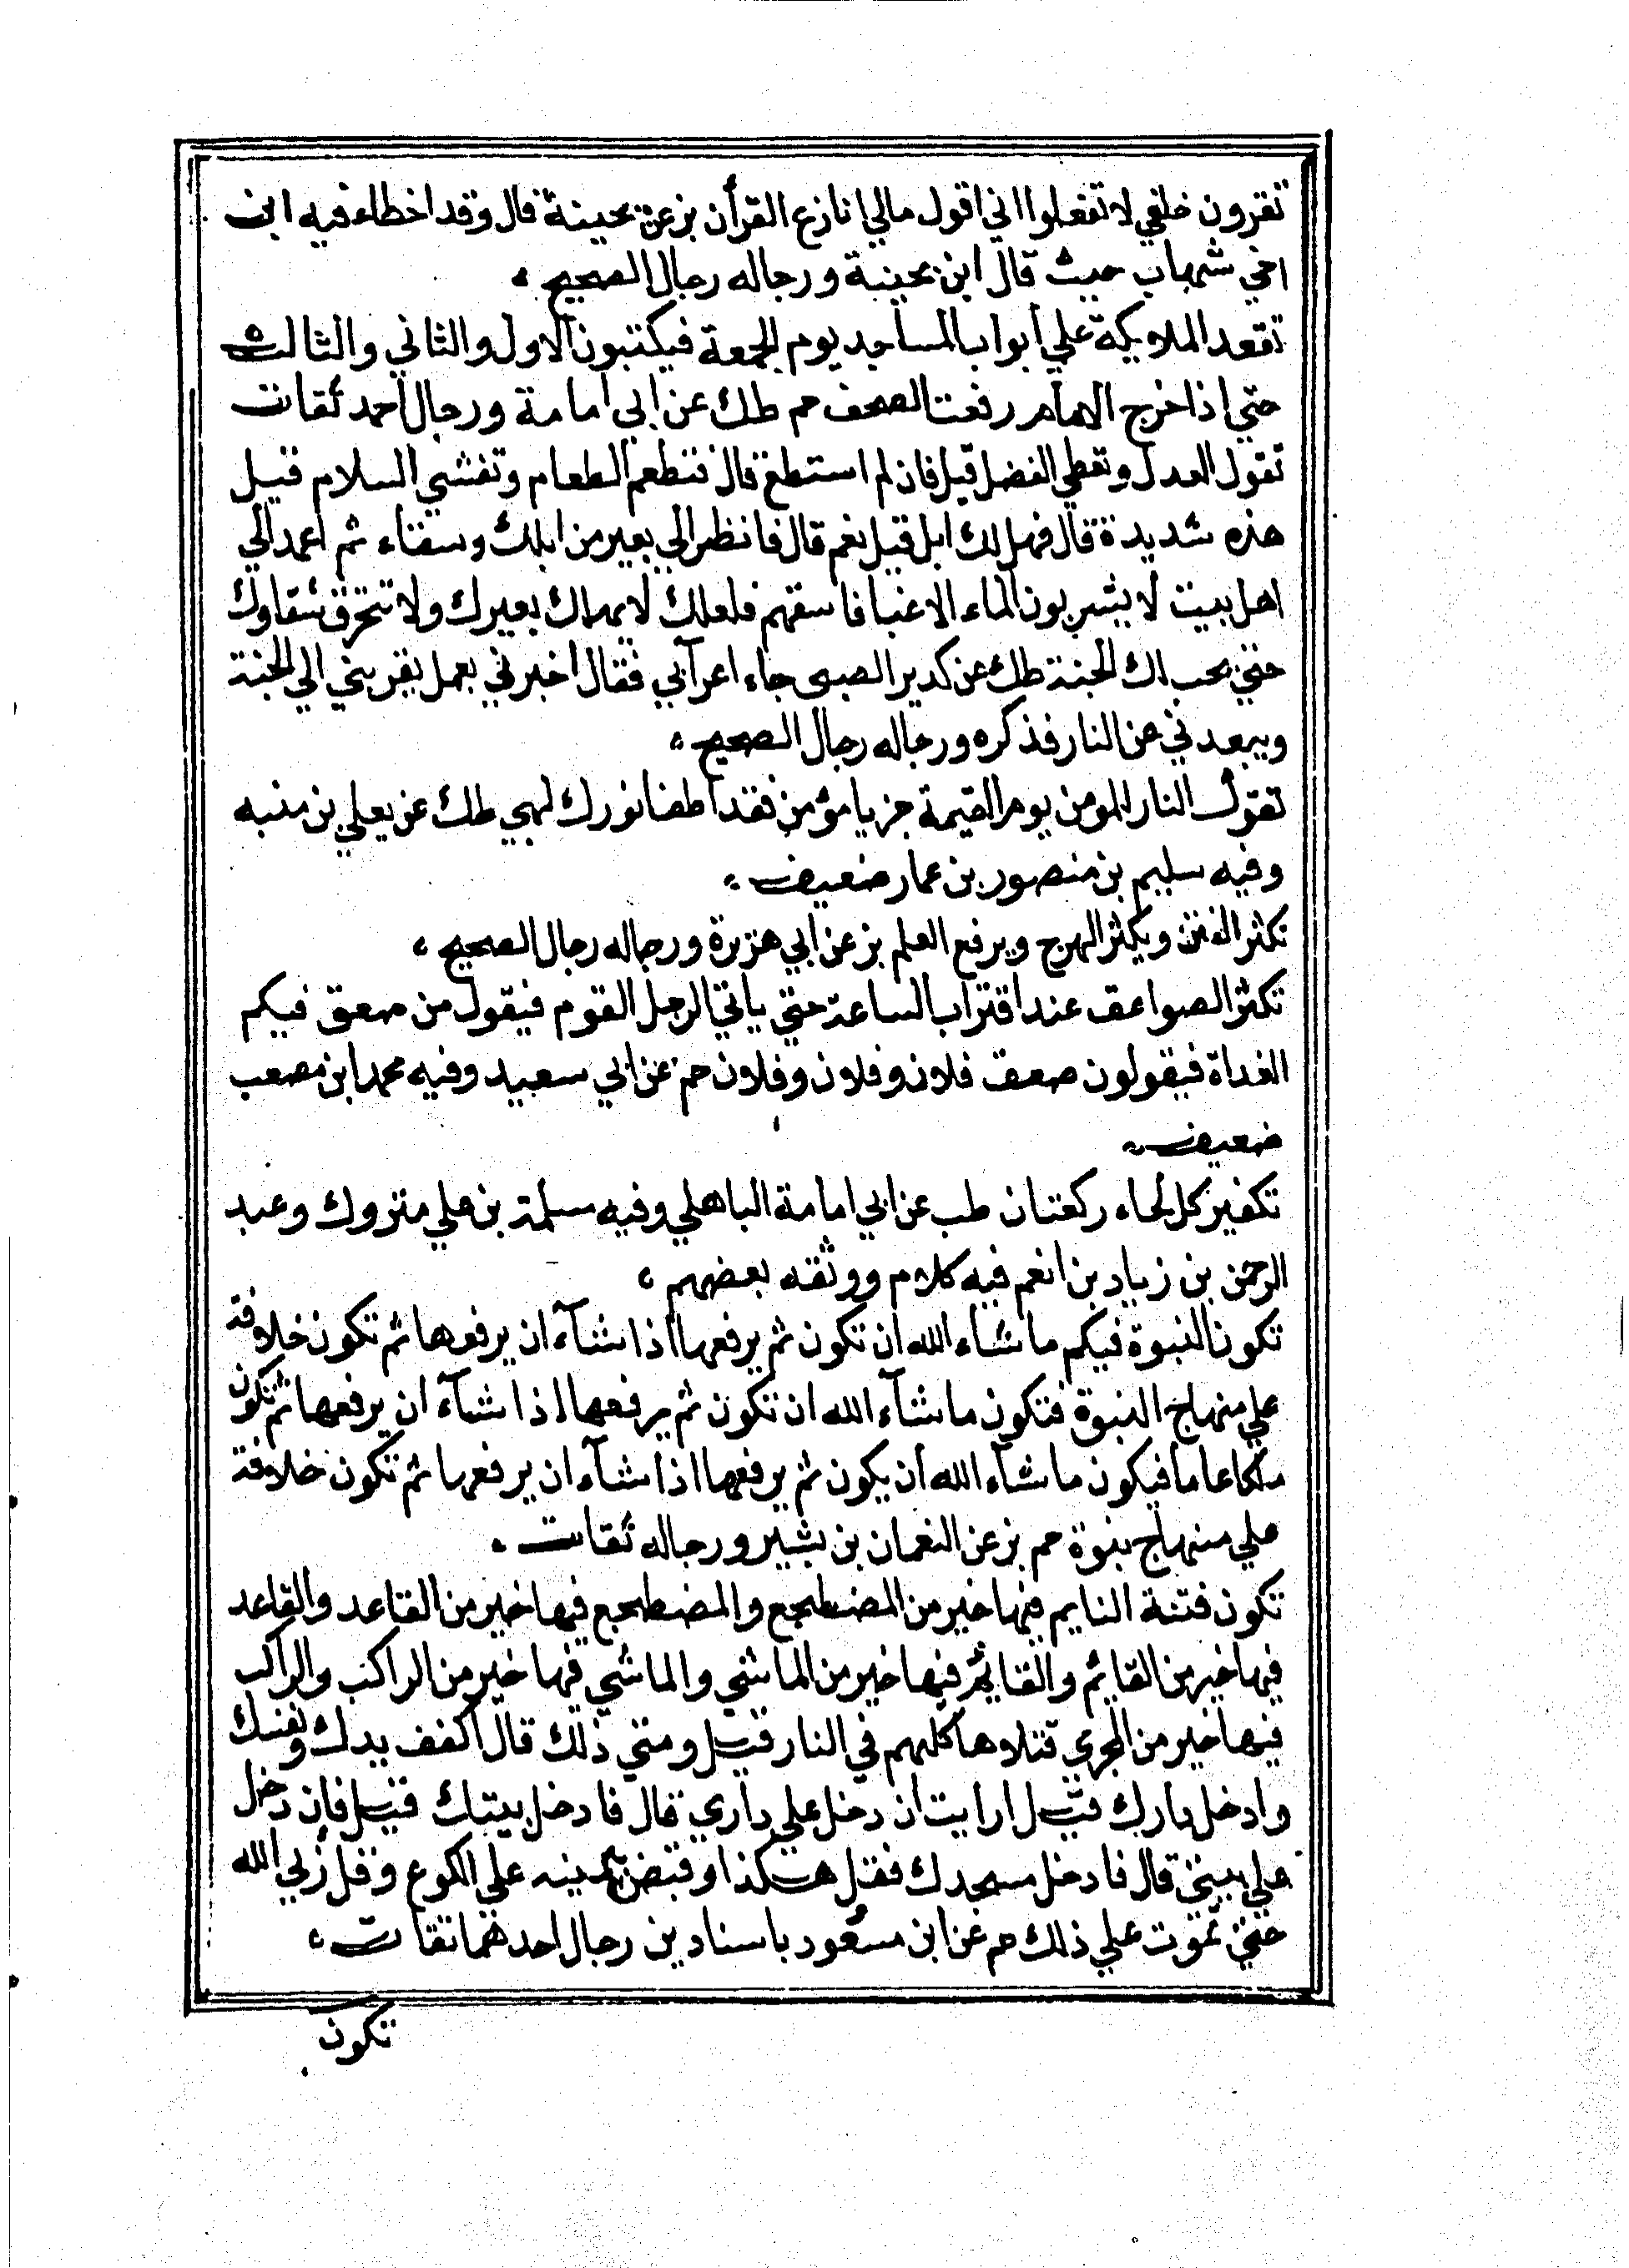 تقرون خلفي لا تفعلوا اني اقول مالي انازع القرأن بزعن بحينة قال وقد اخطاء فيه ابن
اخي شهاب حيث قال ابن بحينة ورجاله رجال الصحيح
تقعد الملايكة علي أبواب المساجد يوم الجمعة فيكتبون الاول والثاني والثالث
حتي اذا خرج الامام رفعت الصحف حم طك عن ابي امامة ورجال احمد ثقات
تقول العدل وتعطي الفضل قيل فان لم استطع قال فتطعم الطعام وتفشي السلام قيل
هذه شديدة قال فهل لك ابل قيل نعم قال فانظر الي بعير من ابلك وسقاء ثم اعمد الي
اهل بيت لا يشربون الماء الا غبا فاسقهم فلعلك لا يهلك بعيرك ولا تتخرق سقاوك
حتي يجب لك الجنة طك عن كدير الضبى جاء اعرآبي فقال اخبرني بعمل يقربني الي الجنة
ويبعدني عن النار فذكره ورجاله رجال الصحيح
تقول النار للمومن يوم القيمة جز يا مؤمن فقد اطفا نورك لهبي طك عن يعلي بن منبه
وفيه سليم بن منصور بن عمار ضعيف
تكثر الفتن ويكثر الهرج ويرفع العلم بز عن ابي هريرة ورجاله رجال الصحيح
تكثر الصواعق عند اقتراب الساعة حتي ياتي الرجل القوم فيقول من صعق فيكم
الغداة فيقولون صعق فلان وفلان وفلان حم عن ابي سعيد وفيه محمد ابن مصعب
ضعيف
تكفير كل لحاء ركعتان طب عن ابي امامة الباهلي وفيه مسلمة بن علي متروك وعبد
الرحمن بن زياد بن انعم فيه كلام ووثقه بعضهم
تكون النبوة فيكم ما شاء الله ان تكون ثم يرفعها اذا شآء ان يرفعها ثم تكون خلافة
علي منهاج النبوة فتكون ما شآء الله ان تكون ثم يرفعها اذا شآء ان يرفعها ثم تكون
ملكا عاما فيكون ما شآء الله أن يكون ثم يرفعها اذا شآء ان يرفعها ثم تكون خلافة
علي منهاج نبوة حم بز عن النعمان بن بشير ورجاله ثقات
تكون فتنة النايم فيها خير من المضطجع والمضطجع فيها خير من القاعد والقاعد
فيها خير من القايم والقايم فيها خير من الماشي والماشي فيها خير من الراكب والراكب
فيها خير من المجري قتلاها كلهم في النار قيل ومتي ذلك قال اكفف يدك ونفسك
وادخل دارك قيل ارايت ان دخل علي داري قال فادخل بيتك قيل فان دخل
علي بيتي قال فادخل مسجدك فقل هكذا وقبض بيمينه علي الكوع وقل ربي الله
حتي تموت علي ذلك حم عن ابن مسعود باسنادين رجال احدهما ثقات
تكون